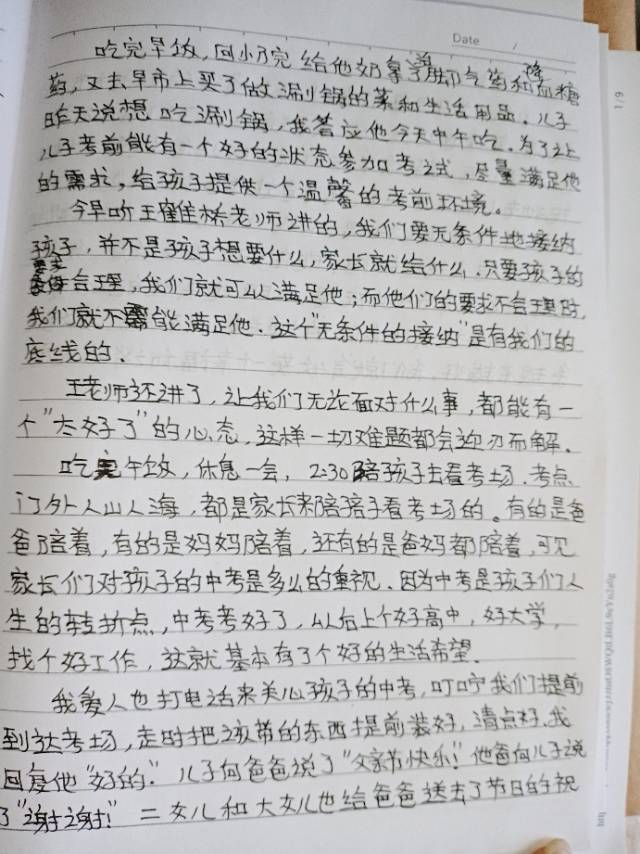 Date
吃完早饭,回小乃完给他奶拿了治脚气药和降血糖
药,又去早市上买了做涮锅的菜和生活用品。儿子
昨天说想吃涮锅,我答应他今天中午吃。为了让
儿子考前能有一个好的状态参加考试,尽量满足他
的需求,给孩子提供一个温馨的考前环境。
今早听王 桥老师讲的,我们要无条件地接纳
孩子,并不是孩子想要什么,家长就给什么。只要孩子的
要求合理,我们就可以满足他;而他们的要求不合理时,
我们就不能满足他。这个"无条件的接纳"是有我们的
底线的。
王老师还讲了,让我们无论面对什么事,都能有一
个"太好了"的心态,这样一切难题都会迎刃而解。
吃完午饭,休息一会,2:30陪孩子去看考场。考点
门外人山人海,都是家长来陪孩子看考场的。有的是爸
爸陪着,有的是妈妈陪着,还有的是爸妈都陪着,可见
家长们对孩子的中考是多么的重视。因为中考是孩子们人
生的转折点,中考考好了,以后上个好高中,好大学,
找个好工作,这就基本有了个好的生活希望。
我爱人也打电话来关心孩子的中考,叮咛我们提前
到达考场,走时把该带的东西提前装好,清点好。我
回复他"好的。"儿子向爸爸说了"父亲节快乐!"他爸向儿子说
了"谢谢!"二女儿和大女儿也给爸爸送去了节日的祝